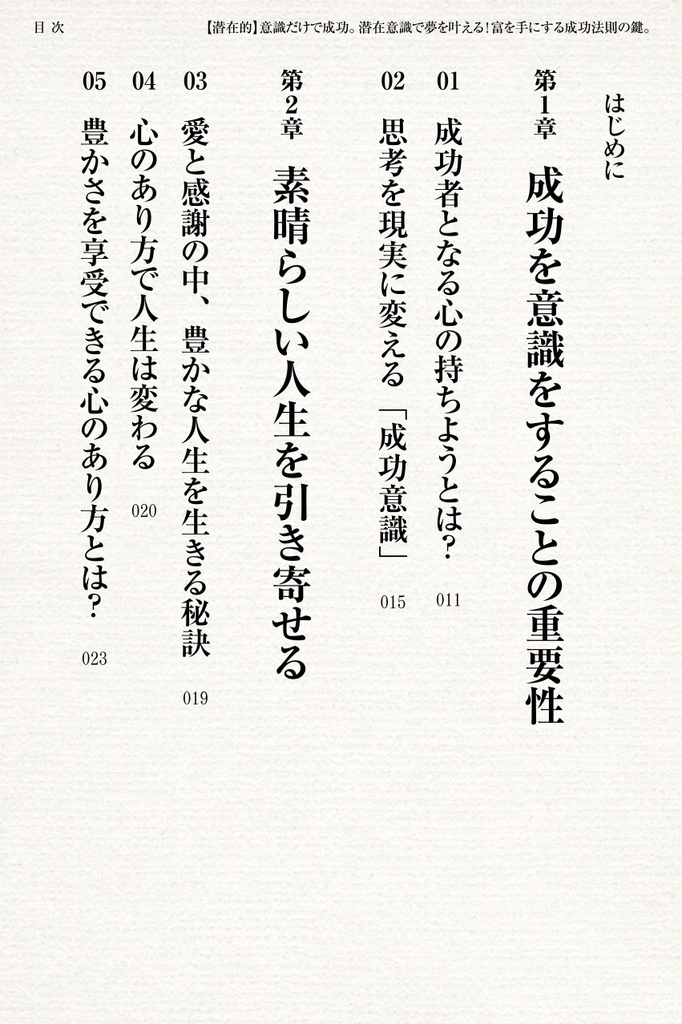 目次
【潜在的】意識だけで成功。潜在意識で夢を叶える!富を手にする成功法則の鍵。
はじめに
第1章 成功を意識をすることの重要性
01 成功者となる心の持ちようとは? 011
02 思考を現実に変える「成功意識」 015
第2章 素晴らしい人生を引き寄せる
03 愛と感謝の中、豊かな人生を生きる秘訣 019
04 心のあり方で人生は変わる 020
05 豊かさを享受できる心のあり方とは? 023